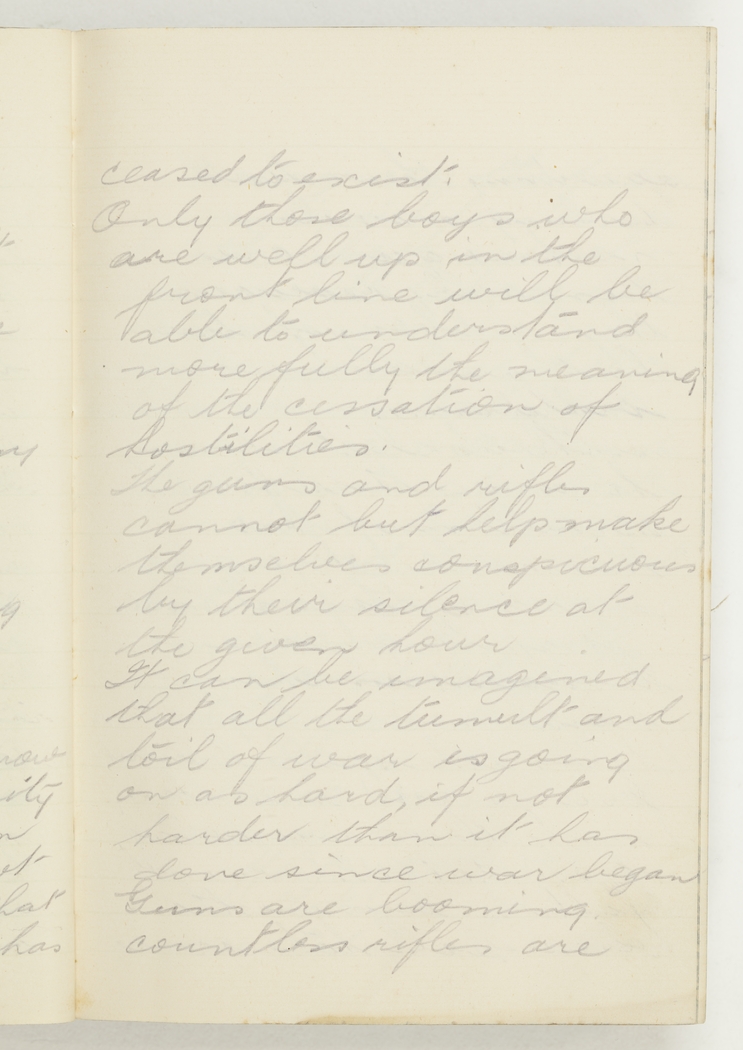 ceased to exist.
Only those boys who
are well up in the
front line will be
able to understand
more fully the meaning
of the cessation of
hostilities.
The guns and rifles
cannot but help make
themselves conspicuous
by their silence at
the given hour
It can be imagined
that all the tumult and
toil of war is going
on as hard, if not
harder than it has
done since war began
Guns are booming.
countless rifles are